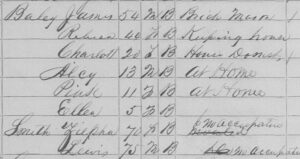 Baley James 54 M B Brick Mason
Rebeca 40 F B Keeping house
Charlott 20 F B House Domest.
Alcy 13 F B at Home
Pink 11 F B at Home
Ellen 5 F B
Smith Zilpha 70 F B No occupation
Lewis 75 M B No occupation